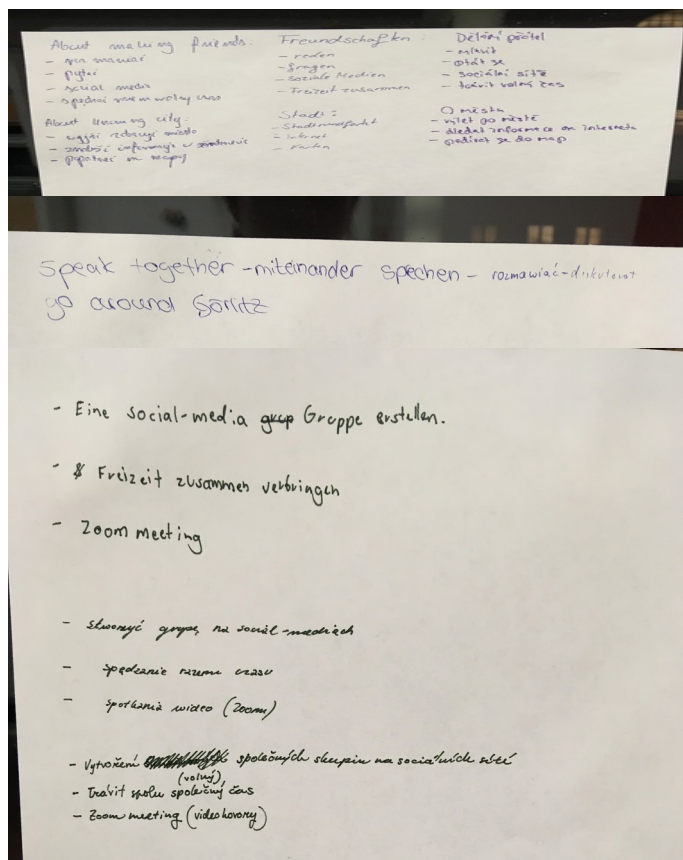 About making friends:
- rozmawiać
- pytać
- social media
- spędzać razem wolny czas
About knowing city:
- miasto
- informacje w internecie
- popatrzeć na mapę
Freundschaften:
- reden
- fragen
- Soziale Medien
- Freizeit zusammen
Stadt:
- Stadtrundfahrt
- Internet
- Karten
Dělání přátel
- mluvit
- ptát se
- sociální sítě
- trávit volný čas
O městu
- výlet po městě
- hledat informace on internetu
- podívat se do map
Speak together - miteinander spechen - rozmawiać - diskutovat
go around Görlitz
- Eine social-media Gruppe erstellen.
- Freizeit zusammen verbringen
- Zoom meeting
- stworzyć grupę na social-mediach
- spędzanie razem czasu
- spotkania wideo (Zoom)
- Vytvoření společných skupin na sociálních sítě
- Trávit spolu společný (volný) čas
- Zoom meeting (videohovory)